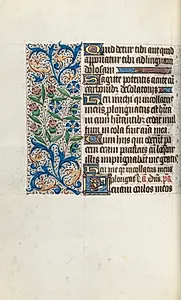 Quid detur tibi aut quid
apponatur tibi ad linguam
dolosam
Sagitte potentis acute cū
carbonib' desolatoriis
Heu michi quia incolatus
meus prolongatus est
cum habitantib' cedar mul
tum incola fuit aīa mea
Cum hiis qui oderunt pa
cem eram pacificus cū
illis impugnabant me gratis
Heu me quia incolatus meus
prolongatus
Levavi oculos meos